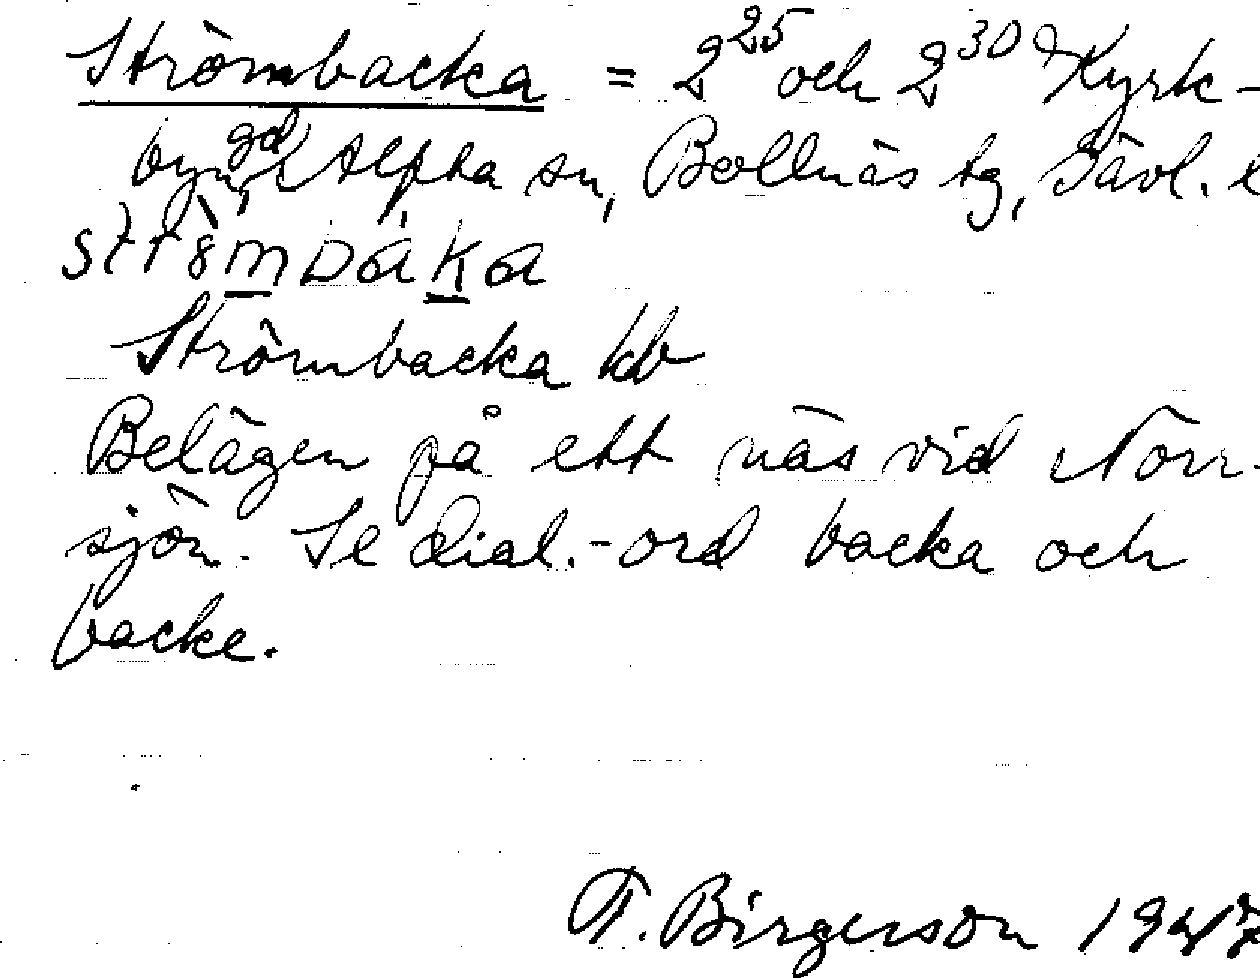 Strömbacka = 2²⁵ och 2³⁰ Kyrk-
byn, gd, Alfta sn, Bollnäs tg, Gävl. l
Strömbacka kb
Belägen på ett näs vid Norr-
sjön. Se dial.-ord backa och
backe.
F. Birgerson 1947